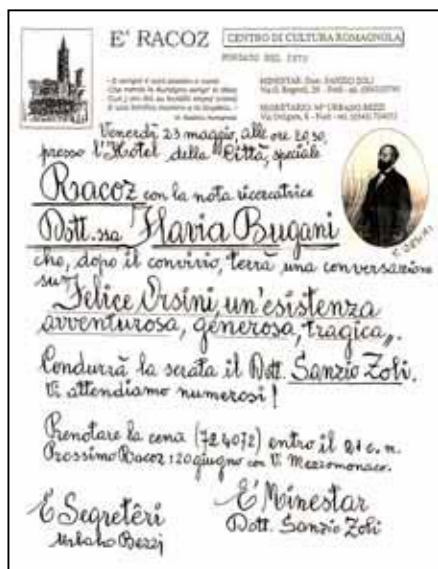 E' RACOZ
CENTRO DI CULTURA ROMAGNOLA
FONDATO NEL 1970
MINESTAR: Dott. SANZIO ZOLI
SEGRETARIO: Mº URBANO BEZZI
Venerdì 23 maggio, alle ore 20,30
presso l'Hotel della Città, speciale
Racoz con la nota ricercatrice
Dott.ssa Flavia Bugani
che, dopo il convivio, terrà una conversazione
su "Felice Orsini, un'esistenza
avventurosa, generosa, tragica".
Condurrà la serata il Dott. Sanzio Zoli.
Vi attendiamo numerosi!
Prenotare la cena (724072) entro il 21 c. m.
Prossimo Racoz: 20 giugno con V. Mezzomonaco.
E' Segretêri
Urbano Bezzi
E' Minestar
Dott. Sanzio Zoli